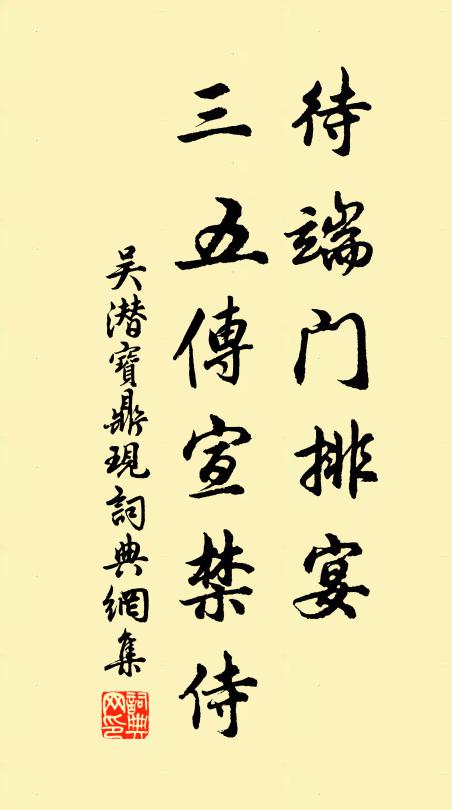 待端门排宴
三五傳宣禁侍
吴潜寶鼎現詞典網集
詞典
网印